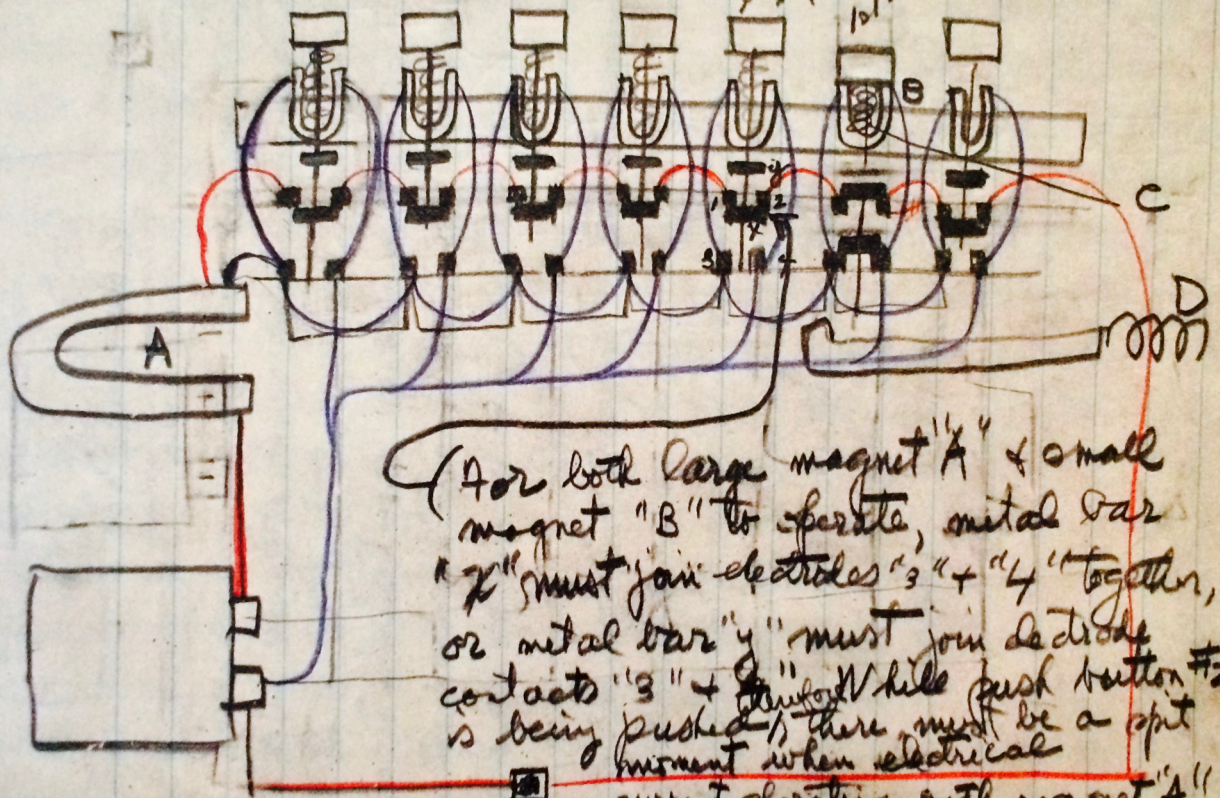 B
y
1 2
x
3 4
C
D
A
(For both large magnet "A" & small
magnet "B" to operate, metal bar
"X" must join electrodes "3" + "4" together,
or metal bar "y" must join electrode
contacts "3" + While push button #2
is being pushed, therefore there must be a split
moment when electrical
current operating both magnet "A"